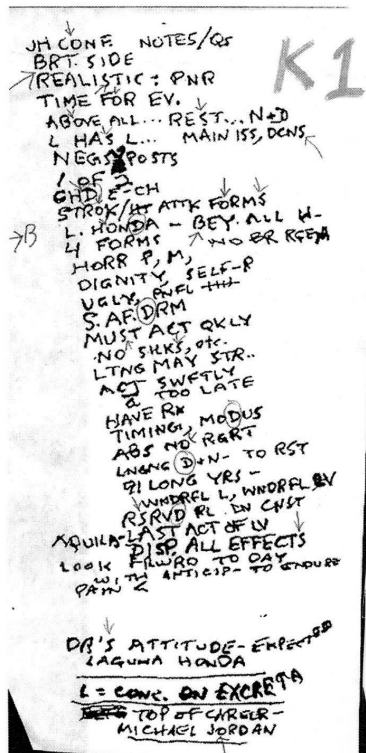 K1
JH CONF NOTES/QS
BRT. SIDE
REALISTIC: PNR
TIME FOR EV.
ABOVE ALL... REST... N+D
L HAS L... MAIN ISS, DCNS
NEGS POSTS
1 OF 2
GHD E-CH
STROK/HT ATTK FORMS
L. HONDA - BEY. ALL H-
B 4 FORMS NO BR
HORR P, M,
DIGNITY, SELF-R
UGLY, PNFL
S. AF. DRM
MUST ACT QKLY
NO SHKS, etc.
LTNG MAY STR..
ACT SWFTLY
2 TOO LATE
HAVE RX
TIMING, MODUS
ABS NO RGRT
LNGNG D+N- TO RST
91 LONG YRS-
WNDRFL L, WNDRFL EV
RSRVD PL. IN CNST
AQUILA-LAST ACT OF LV
DISP. ALL EFFECTS
LOOK FRWRD TO DAY
WITH ANTICIP- TO ENDURE
PAIN &
DR'S ATTITUDE- EXPECTED
LAGUNA HONDA
L = CONC. ON EXCRETA
TOP OF CAREER-
MICHAEL JORDAN